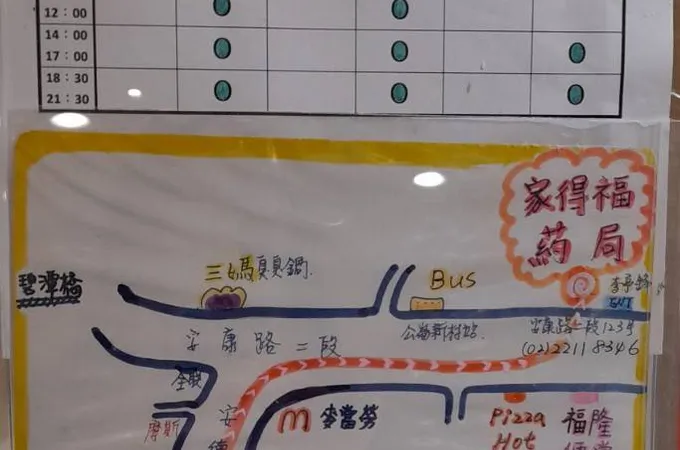 12:00
14:00
17:00
18:30
21:30
家得福
药局
碧潭橋
三媽臭臭鍋
Bus
公崙新村站
安康路一段123号
(02)22118346
安康路二段
全聯
摩斯
安
m 麥當勞
Pizza
Hot
福隆